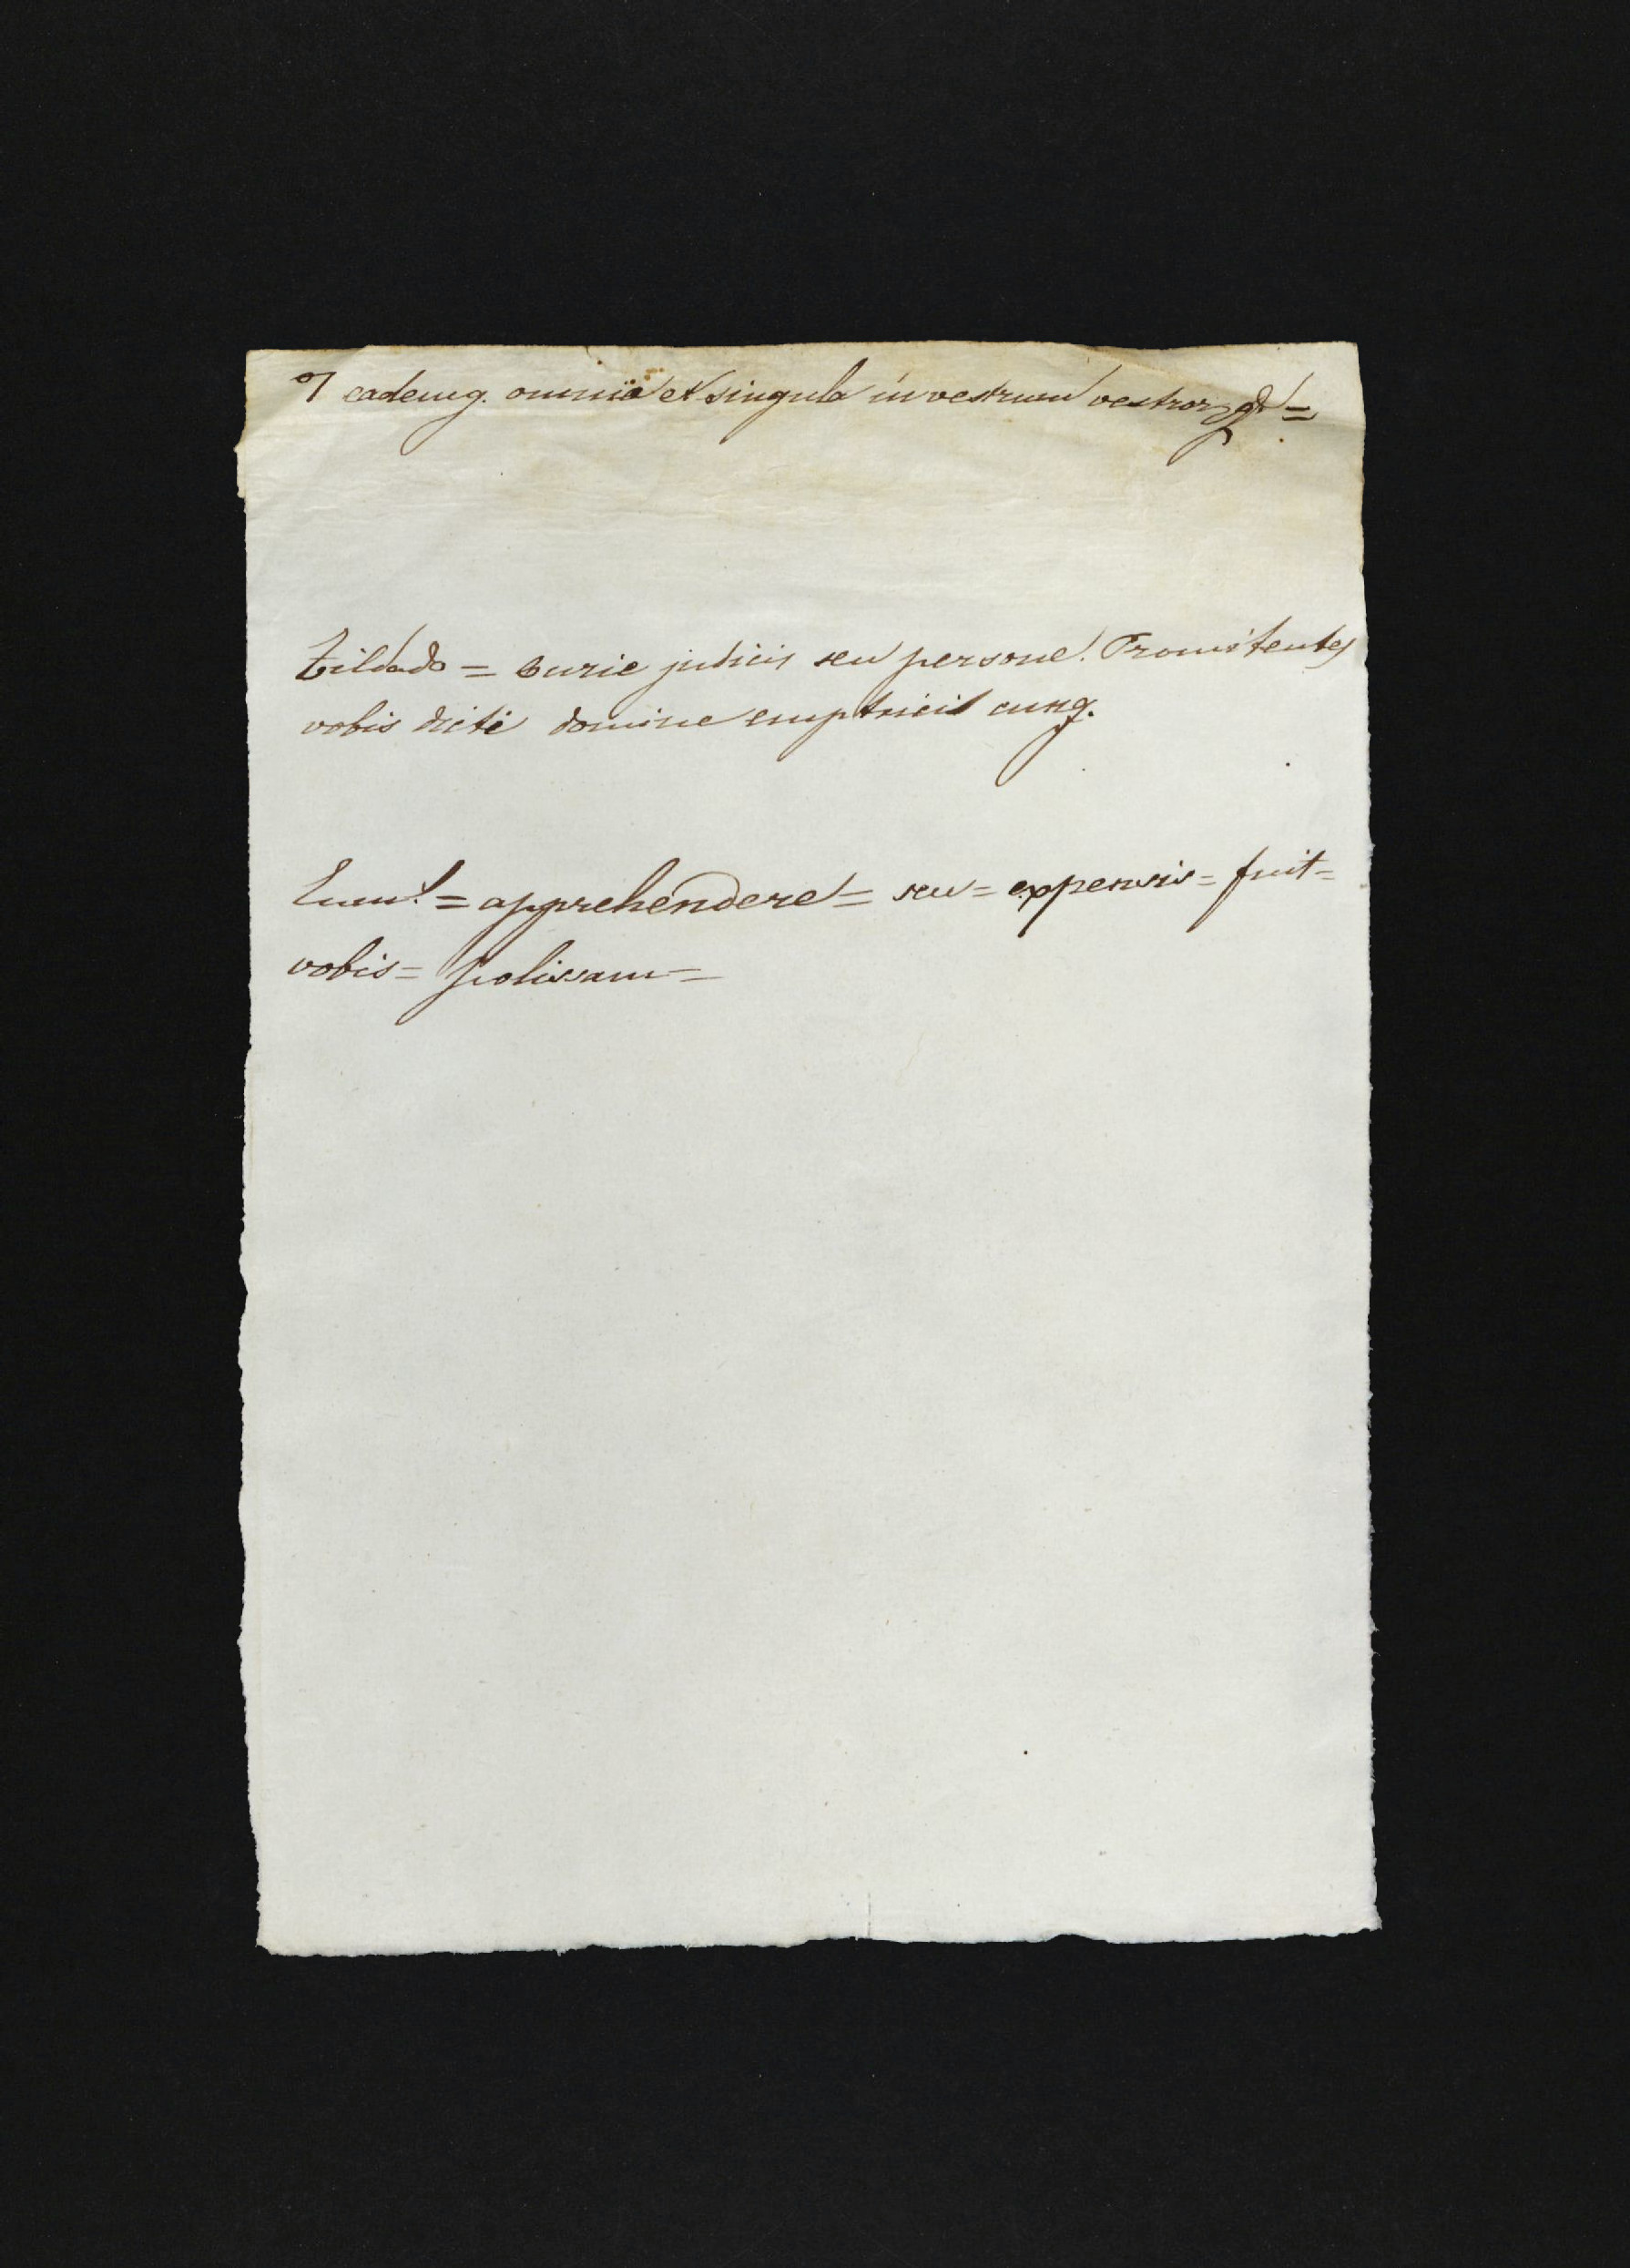 eademq. omnia et singula in vestrum vestror
tildado = curie judicis seu persone. Promitentes
vobis dicte domine emptricis cunq.
Enmd. = apprehendere = seu = expensis = fuit =
vobis = polissam =